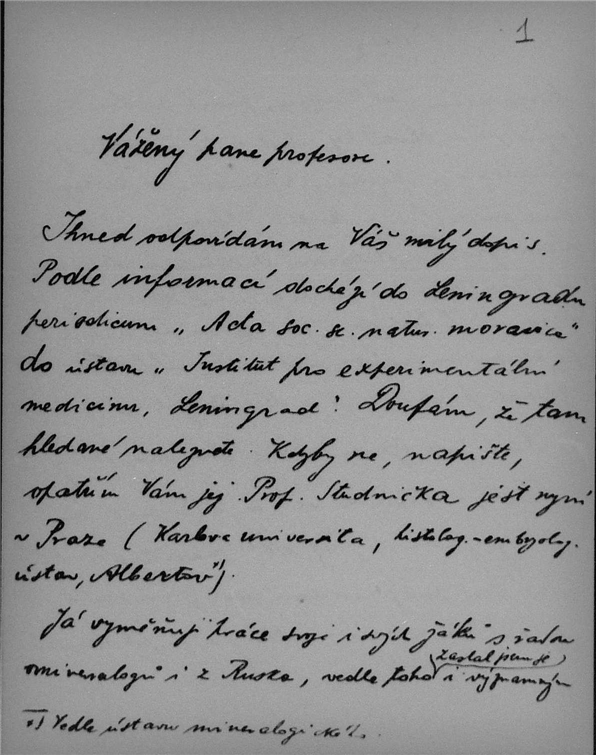 1
Vážený pane profesore.
Ihned odpovídám na Váš milý dopis.
Podle informací dochází do Leningradu
periodicum „ Acta soc. sc. natur. moravicae"
do ústavu „ Institut pro experimentální
medicinu, Leningrad". Doufám, že tam
hledané naleznete. Kdyby ne, napište,
opatřím Vám jej. Prof. Studnička jest nyní
v Praze ( Karlova universita, histolog.-embryolog.
ústav, Albertov x)).
Já vyměňuji práce svoje i svých žáků s řadou
zaslal jsem je
mineralogů i z Ruska, vedle toho i význačným
x) Vedle ústavu mineralogického.